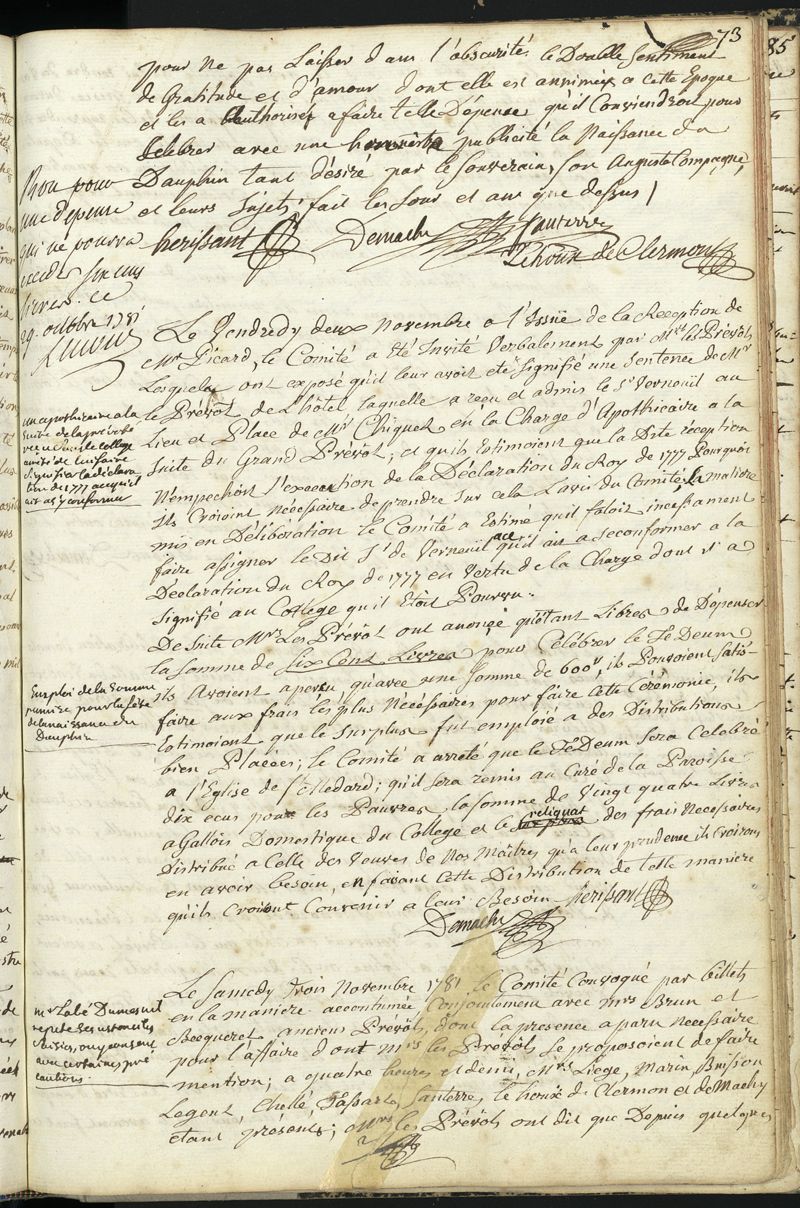 73
pour ne pas Laisser dans l'obscurité le Double Sentiment
de Gratitude et d'amour dont elle est annimée a cette Epoque
et les a authorisés a faire telle Dépense qu'il Conviendroit pour
Celebrer avec une honneste publicité la Naissance du
Dauphin tant désiré par le Souverain, Son Auguste Compagne,
et leurs Sujets; fait les Jour et an que dessus /
herissant Demachy Santerre
Lehoux de Clermont
Bon pour
une depense
qui ne pourra
exceder six cens
livres. ce
29. octobre 1781
Le Vendredy deux Novembre a l'Issüe de la Reception de
Mr Picard, le Comité a été Invité Verbalement par Mrs les Prévôts
Lesquels ont exposé qu'il leur avoit été signifié une Sentence de Mr
le Prévôt de l'hôtel, laquelle a reçu et admis le Sr Verneuil au
Lieu et Place de Mr Chiquet en la Charge d'Apothicaire a la
Suite du Grand Prévôt; et qu'ils Estimoient que la Dite réception
N'empechoit l'execution de la Déclaration du Roy de 1777 Pourquoi
ils Croioint Nécessaire de prendre sur cela Lavis du Comité, la matiere
mis en Délibération le Comité a Estimé qu'il faloit incessamment
faire assigner le Dit Sr de Verneuil ace qu'il ait a se conformer a la
Déclaration du Roy de 1777 en Vertu de la Charge dont il a
signifié au College qu'il Etoit Pourvu.
un apothicaire a la
suite de la prevoté
le college
de lui faire
signifier la déclara
tion de 1777 acequ'il
ait as'y conformer
De Suite Mrs Les Prévôt ont anoncé qu'étant Libres de Dépenser
la Somme de Six Cent Livres pour Célébrer le Te Deum
ils Avoient aperçu, qu'avec une Somme de 600ᵗᵗ, ils Pouvoient Satis-
faire aux frais les plus Nécessaires pour faire Cette Cérémonie, ils
Estimoient que le Surplus fut emploié a des Distributions
bien Placées; le Comité a arreté que le Te Deum Sera Celebré
a l'Eglise de St Medard; qu'il sera remis au Curé de la Paroisse
dix ecus pour les Pauvres la Somme de Vingt quatre Livres
a Gallois Domestique du College et le reliquat des frais Necessaires
Distribué a Celle des Veuves de Nos Maîtres qu'a leur prudence ils Croirons
en avoir besoin, en faisant Cette Distribution de telle maniere
qu'ils Croiront Convenir a leur Besoin herissant
Demachy
Emploi de la Somme
pour la fête
de la naissance du
Dauphin
Le Samedy trois Novembre 1781 le Comité Convoqué par billets
en la maniere accoutumée Conjointement avec Mrs Brun et
Becqueret anciens Prévôts, dont la presence a paru Necessaire
pour l'affaire dont Mrs les Prevôts se proposoient de faire
mention; a quatre heures et demie, Mrs Liege, Marin, Buisson
Legent, Chellé, Tassart, Santerre, le houx de Clermon et deMachy
etant presents; Mrs les Prévôts ont dit que Depuis quelques
Mr Talé Dumesnil
repete ses ustenciles
saisies, on y consent
avec certaines pré
cautions.